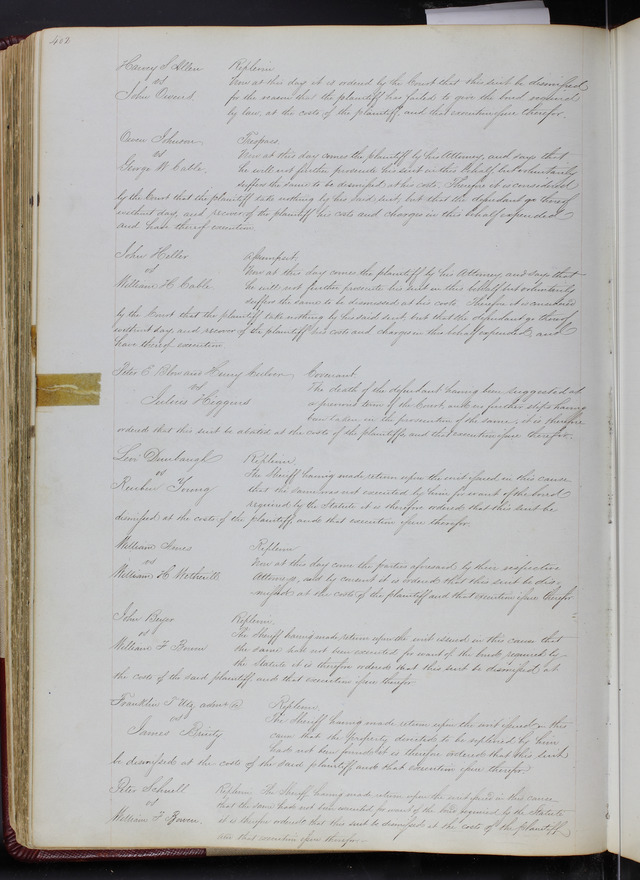 Harvey S Allen Replevin
vs Now at this day it is ordered by the Court that this suit be dismissed
John for the reason that the plaintiff has failed to give the bond required
by law, at the costs of the plaintiff and that execution issue therefor.
Owen Johnson Trespass
vs Now at this day comes the plaintiff by his Attorney, and says that
George W. Cable he will not further prosecute his suit in this behalf, but voluntarily
suffers the same to be dismissed at his costs. Therefore it is considered
by the Court that the plaintiff take nothing by his said suit, but that the defendant go thereof
without day, and recover of the plaintiff his costs and charges in this behalf expended
and have thereof execution
John Heller Assumpsit,
vs Now at this day comes the plaintiff by his Attorney, and says that
William H. Cable he will not further prosecute his suit in this behalf but voluntarily
suffers the same to be dismissed at his costs Therefore it is considered
by the Court that the plaintiff take nothing by his said suit, but that the defendant go thereof
without day, and recover of the plaintiff his costs and charges in this behalf expended, and
have thereof execution
Peter E Blow and Henry Covenant
vs The death of the defendant having been suggested at
Julius Higgins a previous term of the Court, and no further steps having
been taken in the prosecution of the same, it is therefore
ordered that this suit be abated at the costs of the plaintiffs, and that execution issue therefor.
Levi Dunbaugh Replevin
vs The Sheriff having made return upon the writ issued in this cause
Reuben Young that the same was not executed by him for want of the bond
required by the Statute it is therefore ordered that this suit be
dismissed at the costs of the plaintiff and that execution issue therefor.
William Replevin
vs Now at this day came the parties aforesaid by their respective
William H Attorneys, and by consent it is ordered that this suit be dis-
missed at the costs of the plaintiff and that execution issue therefor
John Replevin
vs The Sheriff having made return upon the writ issued in this cause that
William F Bowen the same had not been executed for want of the bond required by
the Statute it is therefore ordered that this suit be dismissed at
the costs of the said plaintiff and that execution issue therefor
Franklin T Utz adm Replevin
vs The Sheriff having made return upon the writ issued in this
James cause that the property directed to be replevied by him
had not been found it is therefore ordered that this suit
be dismissed at the costs of the said plaintiff and that execution issue therefor.
Peter Schnell Replevin The Sheriff having made return upon the writ issued in this cause
vs that the same had not been executed for want of the bond required by the Statute
William F Bowen it is therefore ordered that this suit be dismissed at the costs of the plaintiff
and that execution issue therefor.